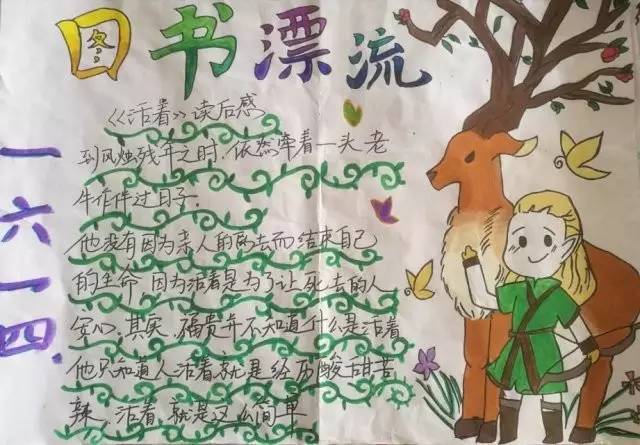 图书漂流
一六一四.
《活着》读后感
到风烛残年之时,依然牵着一头老
牛作伴过日子.
他没有因为亲人的离去而结束自己
的生命,因为活着是为了让死去的人
安心,其实,福贵并不知道什么是活着
他只知道人活着就是经历酸甜苦
辣,活着,就是这么简单